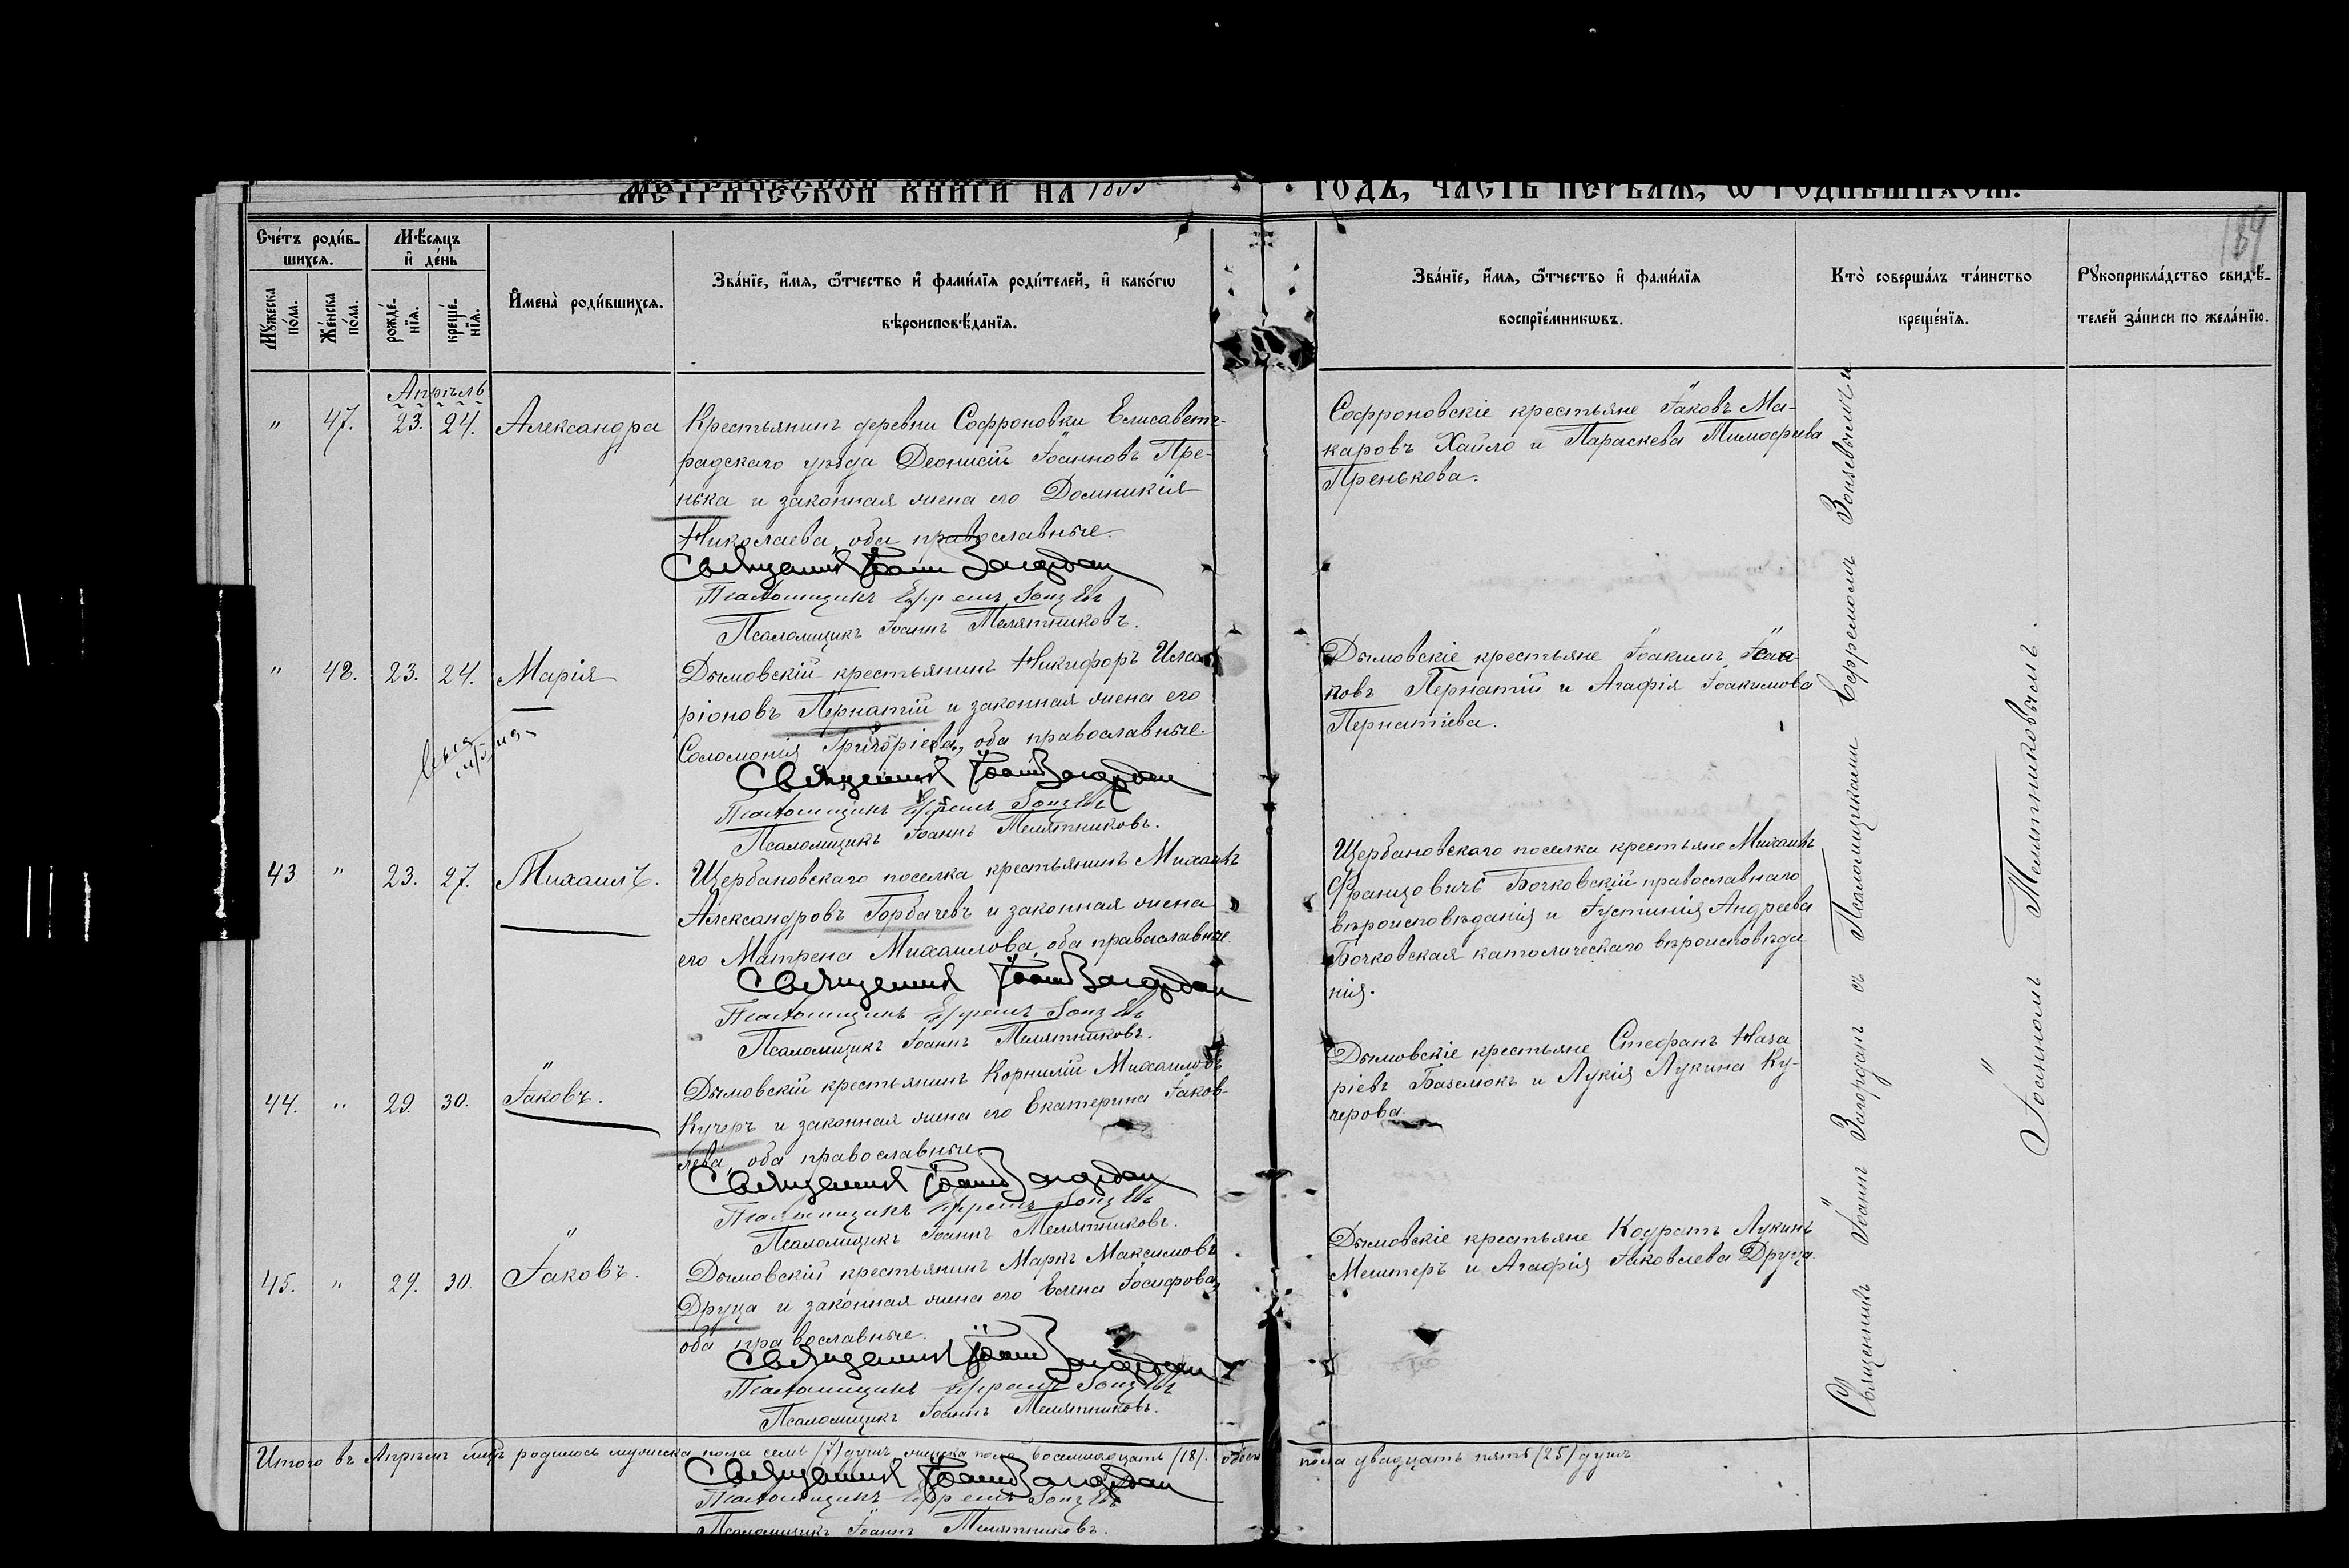 МЕТРИЧЕСКОЙ КНИГИ НА
ГОДЪ, ЧАСТЬ ПЕРВАѦ, Ѡ РОДИВШИХСѦ.
Сче́тъ роди́в-
шихсѧ.
Мѣ́сѧцъ
и҆ де́нь
И҆мена̀ роди́вшихсѧ.
Зва́нїе, и҆́мѧ, ѻ҆́тчество и҆ фами́лїѧ роди́телей, и҆ како́гѡ
вѣроисповѣ́данїѧ.
Мꙋ́жеска
по́ла.
Же́нска
по́ла.
рожде́-
нїѧ.
креще́-
нїѧ.
Зва́нїе, и҆́мѧ, ѻ҆́тчество и҆ фами́лїѧ
воспрїе́мникѡвъ.
Кто̀ соверша́лъ та́инство
креще́нїѧ.
Рꙋкоприкла́дство свидѣ́-
телей за́писи по жела́нїю.
Апрѣль
" 47. 23. 24. Александра
Крестьянинъ деревни Софроновки Елисаветг-
радскаго уѣзда Деонисій Іоанновъ Пре-
нька и законная жена его Домникія
Николаева, оба православные.
Священникъ Іоаннъ Загордан
Псаломщикъ Ефремъ
Псаломщикъ Іоаннъ Телятниковъ.
Софроновскіе крестьяне Іаковъ Ма-
каровъ Хайло и Параскева Тимофѣева
Пренькова.
" 48. 23. 24. Марія
Дымовскій крестьянинъ Никифоръ Илла-
ріоновъ Пернатій и законная жена его
Соломонія Григоріева, оба православные.
Священникъ Іоаннъ Загордан
Псаломщикъ Ефремъ
Псаломщикъ Іоаннъ Телятниковъ.
Дымовскіе крестьяне Іоакимъ Исаа-
ковъ Пернатій и Агафія Іоакимова
Пернатіева.
43 " 23. 27. Михаилъ.
Щербановскаго поселка крестьянинъ Михаилъ
Александровъ Горбачевъ и законная жена
его Матрена Михаилова, оба православные.
Священникъ Іоаннъ Загордан
Псаломщикъ Ефремъ
Псаломщикъ Іоаннъ Телятниковъ.
Щербановскаго поселка крестьяне Михаилъ
Францовичъ Бочковскій православнаго
вѣроисповѣданія и Іустинія Андреева
Бочковская католическаго вѣроисповѣда
нія.
44. " 29. 30. Іаковъ.
Дымовскій крестьянинъ Корнилій Михаиловъ
Кучеръ и законная жена его Екатерина Іаков-
лева, оба православные.
Священникъ Іоаннъ Загордан
Псаломщикъ Ефремъ
Псаломщикъ Іоаннъ Телятниковъ.
Дымовскіе крестьяне Стефанъ Наза
ріевъ Базелюкъ и Лукія Лукина Ку-
черова.
45. " 29. 30. Іаковъ.
Дымовскій крестьянинъ Маркъ Максимовъ
Друца и законная жена его Елена Іосифова,
оба православные.
Священникъ Іоаннъ Загордан
Псаломщикъ Ефремъ
Псаломщикъ Іоаннъ Телятниковъ.
Дымовскіе крестьяне Кодратъ Лукинъ
Мештеръ и Агафія Іаковлева Друца.
Священникъ Іоаннъ Загордан съ Псаломщиками Ефремомъ
Іоанномъ Телятниковымъ.
Итого въ Апрѣлѣ м-цѣ родилось мужеска пола семь (7) душъ, женска пола восемнадцать (18). обоего пола двадцать пять (25) душъ
Священникъ Іоаннъ Загордан
Псаломщикъ Ефремъ
Псаломщикъ Іоаннъ Телятниковъ.